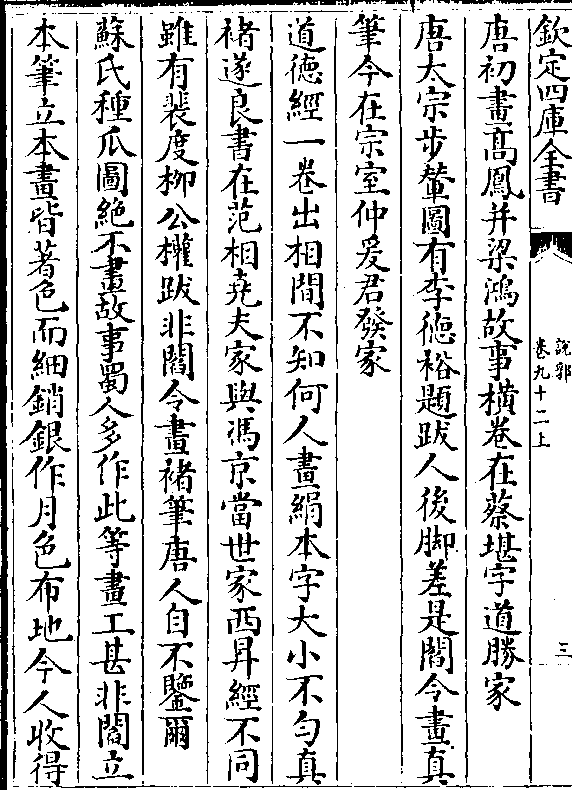 欽定四庫全書
說郛
卷九十二上
三
唐初畫髙鳳并梁鴻故事横卷在蔡堪字道勝家
唐太宗步輦圖有李徳裕題跋人後脚差是閻令畫真
筆今在宗室仲爰君發家
道徳經一卷出相間不知何人畫絹本字大小不匀真
褚遂良書在范相堯夫家與馮京當世家西昇經不同
雖有裴度栁公權跋非閻令畫褚筆唐人自不鑒爾
蘇氏種瓜圖絶不畫故事蜀人多作此等畫工甚非閻立
本筆立本畫皆著色而細銷銀作月色布地今人收得